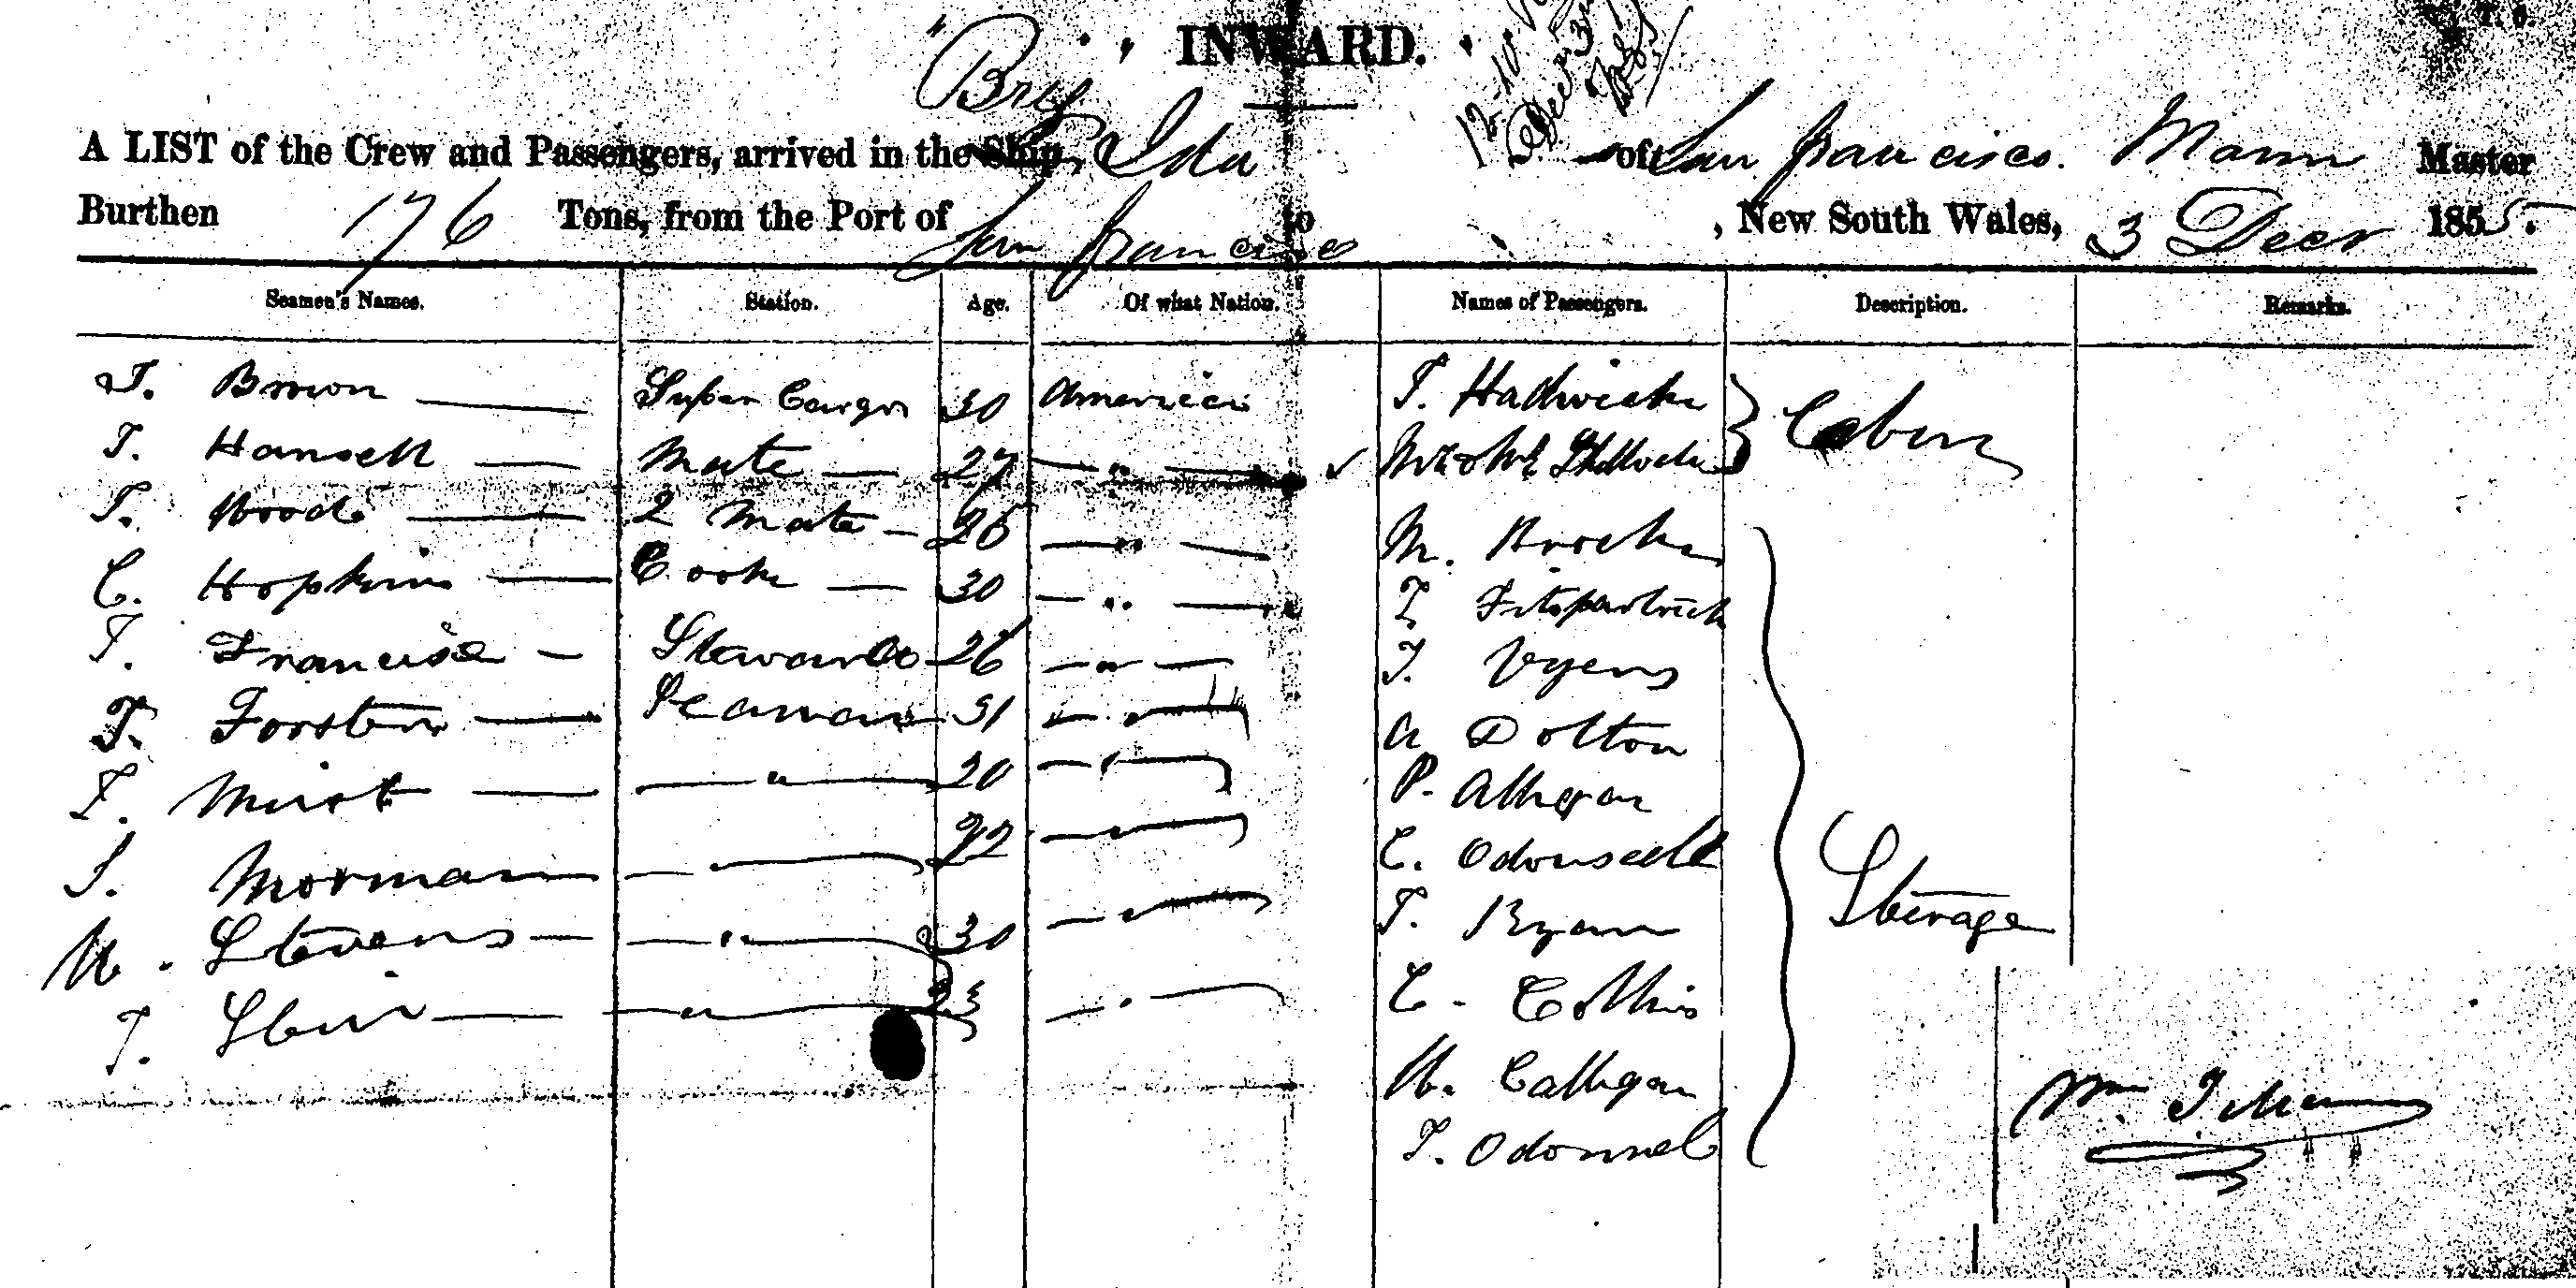 INWARD.
"Brig
A LIST of the Crew and Passengers, arrived in the Ship, Ida of San Francisco. Mann Master
Burthen 176 Tons, from the Port of San Francisco to , New South Wales, 3 Decr 1855.
Seamen's Names. Station. Age. Of what Nation. Names of Passengers. Description. Remarks.
J. Brown Super Cargo 30 America T. Hadwick Cabin
T. Hansell Mate 27 " Mr & Mrs
T. Wood 2 Mate 26 " M. Brock
C. Hopkins Cook 30 " T Fitzpartrick
T. Francise Steward 26 " T. Vyens
T. Forster Seaman 31 " A Dolton
T. Mirot " 20 " P. Allhgan
S. Morman " 22 " C. Odonsell
W. Stevens " 30 " T. Ryan Sterage
T. " 23 " C. Collins
W. Callhgan
T. Odonnel
Wm.